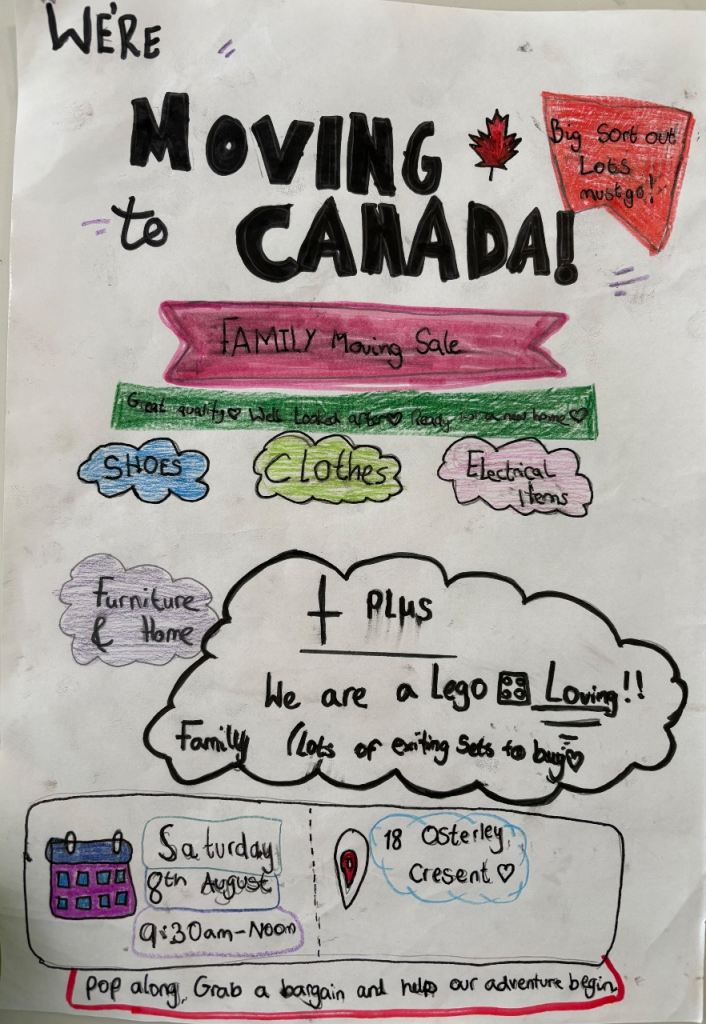 WE'RE
MOVING
to CANADA!
Big Sort out
Lots
must go!
FAMILY Moving Sale
Great quality♡ Well Looked after♡ Ready for a new home♡
SHOES
Clothes
Electrical
Items
Furniture
& Home
+ PLUS
We are a Lego Loving!!
Family (Lots of exiting Sets to buy♡
Saturday
8th August
9:30am-Noon
18 Osterley
Cresent ♡
Pop along, Grab a bargain and help our adventure begin.